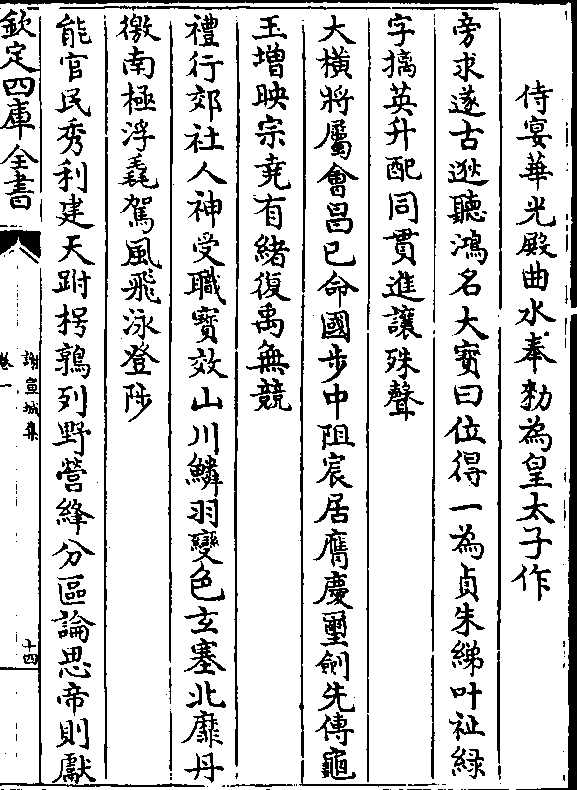 侍宴華光殿曲水奉勑為皇太子作
旁求邃古逖聽鴻名大寳曰位得一為貞朱綈叶祉緑
字摛英升配同貫進讓殊聲
大橫將屬會昌已命國步中阻宸居膺慶璽劒先傳龜
玉增映宗堯有緒復禹無競
禮行郊社人神受職寳效山川鱗羽變色玄塞北靡丹
徼南極浮毳駕風飛泳登陟
能官民秀利建天跗枴鶉列野營絳分區論思帝則獻
欽定四庫全書
謝宣城集
卷一
十四